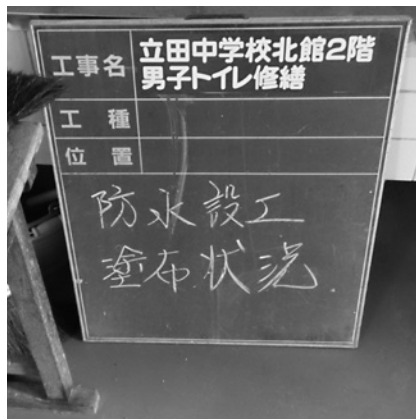 工事名 立田中学校北館2階
男子トイレ修繕
工種
位置
防水設工
塗布状況